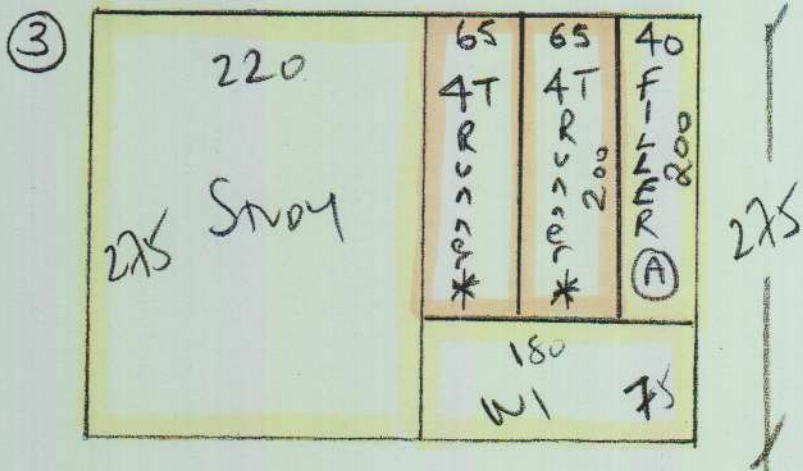 3
220
275 Study
65
4T
Runner
*
65
4T
Runner
200
*
40
FILLER
200
A
180
W1 75
275